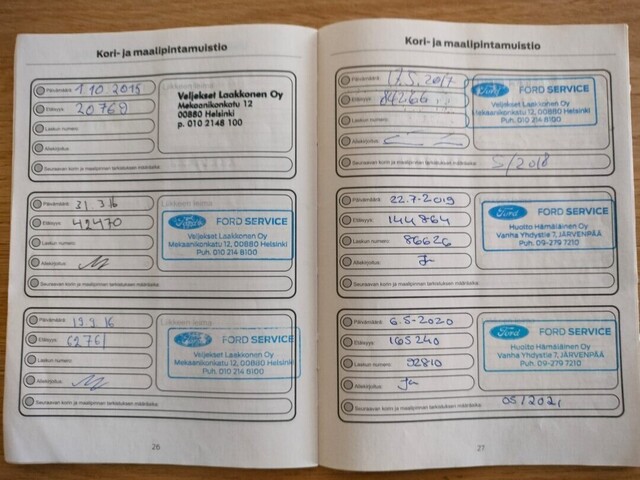 Kori- ja maalipintamuistio
Päivämäärä: 1.10.2015
Etäisyys: 20769
Laskun numero:
Allekirjoitus:
Seuraavan korin ja maalipinnan tarkistuksen määräaika:
Veljekset Laakkonen Oy
Mekaanikonkatu 12
00880 Helsinki
p. 010 2148 100
Päivämäärä: 31.3.16
Etäisyys: 42470
Laskun numero:
Allekirjoitus:
Seuraavan korin ja maalipinnan tarkistuksen määräaika:
Ford FORD SERVICE
Veljekset Laakkonen Oy
Mekaanikonkatu 12, 00880 Helsinki
Puh. 010 214 8100
Päivämäärä: 19.9.16
Etäisyys:
Laskun numero:
Allekirjoitus:
Seuraavan korin ja maalipinnan tarkistuksen määräaika:
Ford FORD SERVICE
Veljekset Laakkonen Oy
Mekaanikonkatu 12, 00880 Helsinki
Puh. 010 214 8100
26
Kori- ja maalipintamuistio
Päivämäärä: 17.5.2017
Etäisyys: 84266
Laskun numero:
Allekirjoitus:
Seuraavan korin ja maalipinnan tarkistuksen määräaika: 5/2018
Ford FORD SERVICE
Veljekset Laakkonen Oy
Mekaanikonkatu 12, 00880 Helsinki
Puh. 010 214 8100
Päivämäärä: 22.7-2019
Etäisyys: 144764
Laskun numero: 86626
Allekirjoitus:
Seuraavan korin ja maalipinnan tarkistuksen määräaika:
Ford FORD SERVICE
Huolto Hämäläinen Oy
Vanha Yhdystie 7, JÄRVENPÄÄ
Puh. 09-279 7210
Päivämäärä: 6.5-2020
Etäisyys: 165240
Laskun numero: 92810
Allekirjoitus:
Seuraavan korin ja maalipinnan tarkistuksen määräaika: 05/2021
Ford FORD SERVICE
Huolto Hämäläinen Oy
Vanha Yhdystie 7, JÄRVENPÄÄ
Puh. 09-279 7210
27